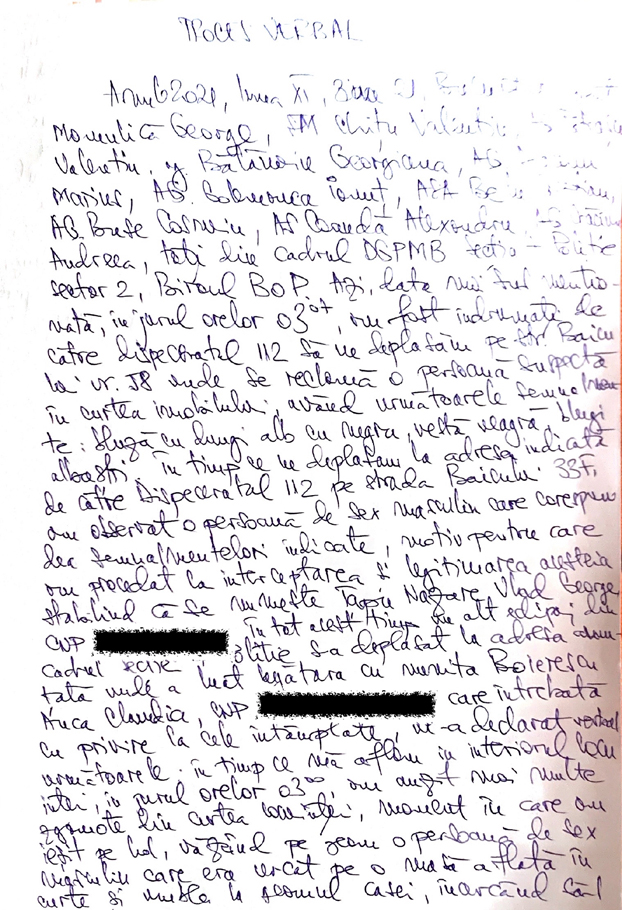 PROCES VERBAL
Anul 2021, luna XI, ziua
Momeulică George, Chițu Valentin,
Valentin, Georgiana, AG.
Marius, AG. Solomonca Ionuț,
AG. Cosmin, AG Coandă Alexandru
Andreea, toți din cadrul DGPMB Secția Poliție
sector 2, Biroul BOP. Azi, data mai sus mentio-
nată, în jurul orelor 03⁰⁷, am fost îndrumați de
către dispeceratul 112 să ne deplasăm pe str. Baicu
lui nr. 58 unde se reclamă o persoană suspectă
în curtea imobilului, având următoarele semnalmen
te: bluză cu dungi alb cu negru, vestă neagră, blugi
albaștri. În timp ce ne deplasam la adresa indicată
de către Dispeceratul 112 pe strada Baicului 33F,
am observat o persoană de sex masculin care corespun
dea semnalmentelor indicate, motiv pentru care
am procedat la interceptarea și legitimarea acesteia
stabilind că se numește Vlad George
CNP În tot acest timp un alt echipaj din
cadrul secție poliție s-a deplasat la adresa
tată unde a luat legătura cu numita Boierescu
Anca Claudia, CNP care întrebată
cu privire la cele întâmplate, ne-a declarat verbal
următoarele: în timp ce mă aflam în interiorul locu
inței, în jurul orelor 03⁰⁰, am auzit mai multe
zgomote din curtea locuinței, moment în care am
ieșit pe hol, văzând pe geam o persoană de sex
masculin care era urcat pe o masă aflată în
curte și umbla la geamul casei, încercând să-l